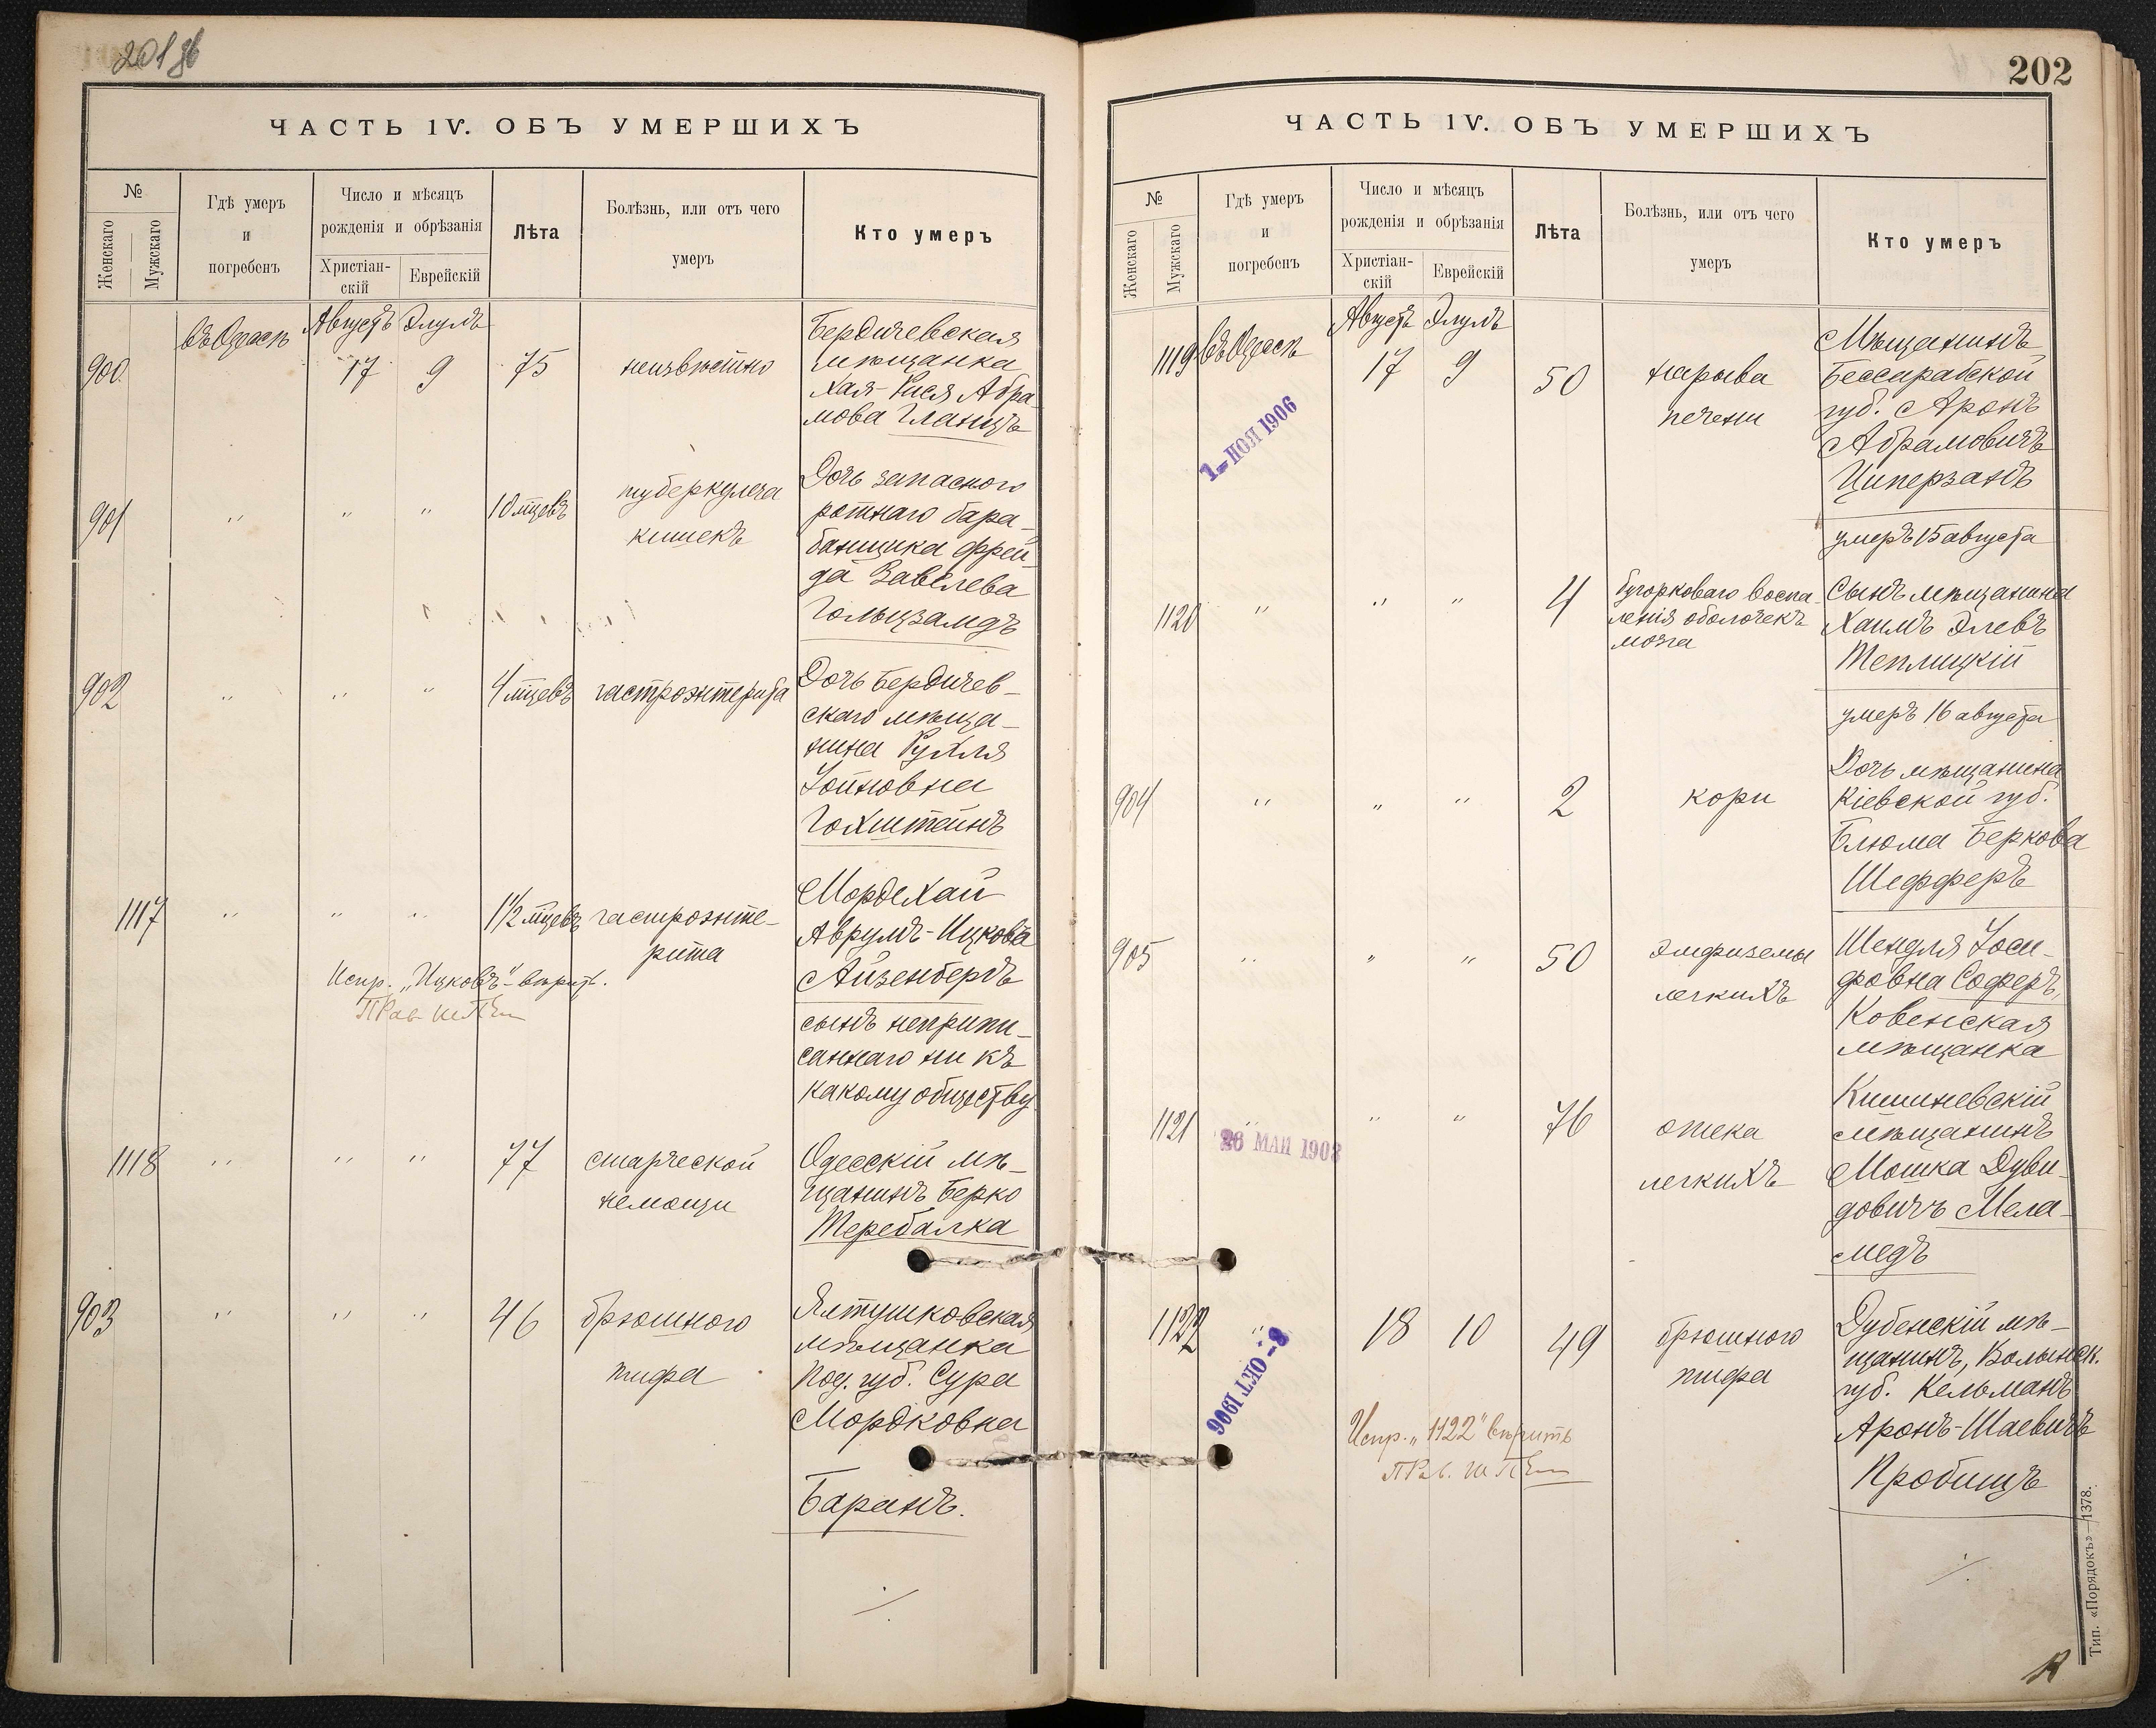 201 об
ЧАСТЬ IV. ОБЪ УМЕРШИХЪ
№
Женскаго
Мужскаго
Гдѣ умеръ
и
погребенъ
Число и мѣсяцъ
рожденія и обрѣзанія
Христіан-
скій
Еврейскій
Лѣта
Болѣзнь, или отъ чего
умеръ
Кто умеръ
900
въ Одессѣ
Августъ Элулъ
17 9
75
неизвѣстно
Бердичевская
мѣщанка
Хая-Рися Абра-
мова Гланцъ
901
" " "
10 мѣцевъ
туберкулеза
кишекъ
Дочь запаснаго
ротнаго бара-
банщика Фрей-
да Завелева
Гольцзамдъ
902
" " "
4 мѣцевъ
гастроэнтерита
Дочь Бердичев-
скаго мѣща-
нина Рухля
Іойновна
Гохштейнъ
1117
" " "
1½ мѣцевъ
гастроэнте-
рита
Мордехай
Аврумъ-Ицковъ
Айзенбергъ
сынъ неприпи-
саннаго ни къ
какому обществу
Испр. „Ицковъ"-вѣрить.
1118
" " "
77
старческой
немощи
Одесскій мѣ-
щанинъ Берко
Теребалка
903
" " "
46
брюшного
тифа
Ялтушковская
мѣщанка
Под. губ. Сура
Мордковна
Баранъ.
202
ЧАСТЬ IV. ОБЪ УМЕРШИХЪ
№
Женскаго
Мужскаго
Гдѣ умеръ
и
погребенъ
Число и мѣсяцъ
рожденія и обрѣзанія
Христіан-
скій
Еврейскій
Лѣта
Болѣзнь, или отъ чего
умеръ
Кто умеръ
1119
въ Одессѣ
Августъ Элулъ
17 9
50
нарыва
печени
Мѣщанинъ
Бессарабской
губ. Аронъ
Абрамовичъ
Циперзандъ
умеръ 15 августа
1-НОЯ 1906
1120
" " "
4
бугорковаго воспа-
ленія оболочекъ
мозга
Сынъ мѣщанина
Хаимъ Элевъ
Теплицкій
умеръ 16 августа
904
" " "
2
кори
Дочь мѣщанина
Кіевской губ.
Блюма Беркова
Шефферъ
905
" " "
50
эмфиземы
легкихъ
Шендля Іоси-
фовна Соферъ,
Ковенская
мѣщанка
1121
" " "
76
отека
легкихъ
Кишиневскій
мѣщанинъ
Мошка Дуви-
довичъ Мела-
медъ
26 МАЙ 1908
1122
"
18 10
49
брюшного
тифа
Дубенскій мѣ-
щанинъ, Волынск.
губ. Кельманъ
Аронъ-Шаевичъ
Пробицъ
8-ОКТ 1906
Испр. „1122" вѣрить
Тип. «Порядокъ»—1378.